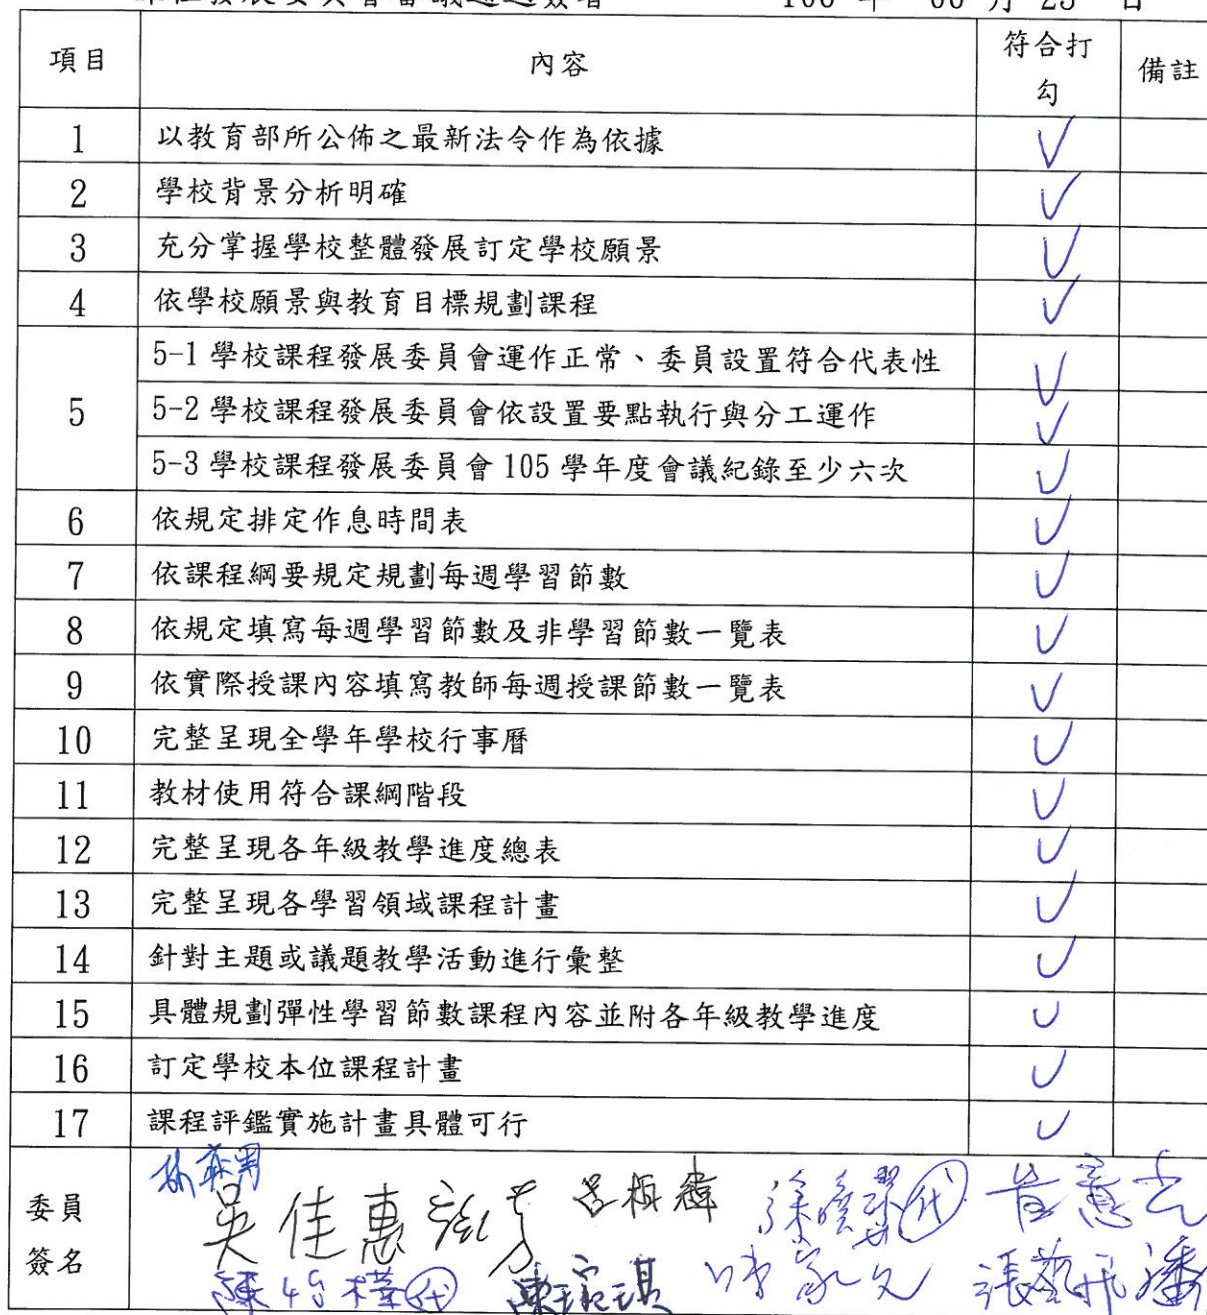 項目 內容 符合打勾 備註
1 以教育部所公佈之最新法令作為依據 ✓
2 學校背景分析明確 ✓
3 充分掌握學校整體發展訂定學校願景 ✓
4 依學校願景與教育目標規劃課程 ✓
5 5-1 學校課程發展委員會運作正常、委員設置符合代表性 ✓
5-2 學校課程發展委員會依設置要點執行與分工運作 ✓
5-3 學校課程發展委員會 105 學年度會議紀錄至少六次 ✓
6 依規定排定作息時間表 ✓
7 依課程綱要規定規劃每週學習節數 ✓
8 依規定填寫每週學習節數及非學習節數一覽表 ✓
9 依實際授課內容填寫教師每週授課節數一覽表 ✓
10 完整呈現全學年學校行事曆 ✓
11 教材使用符合課綱階段 ✓
12 完整呈現各年級教學進度總表 ✓
13 完整呈現各學習領域課程計畫 ✓
14 針對主題或議題教學活動進行彙整 ✓
15 具體規劃彈性學習節數課程內容並附各年級教學進度 ✓
16 訂定學校本位課程計畫 ✓
17 課程評鑑實施計畫具體可行 ✓
委員簽名
吳佳惠
代
陳 代 陳琬琪